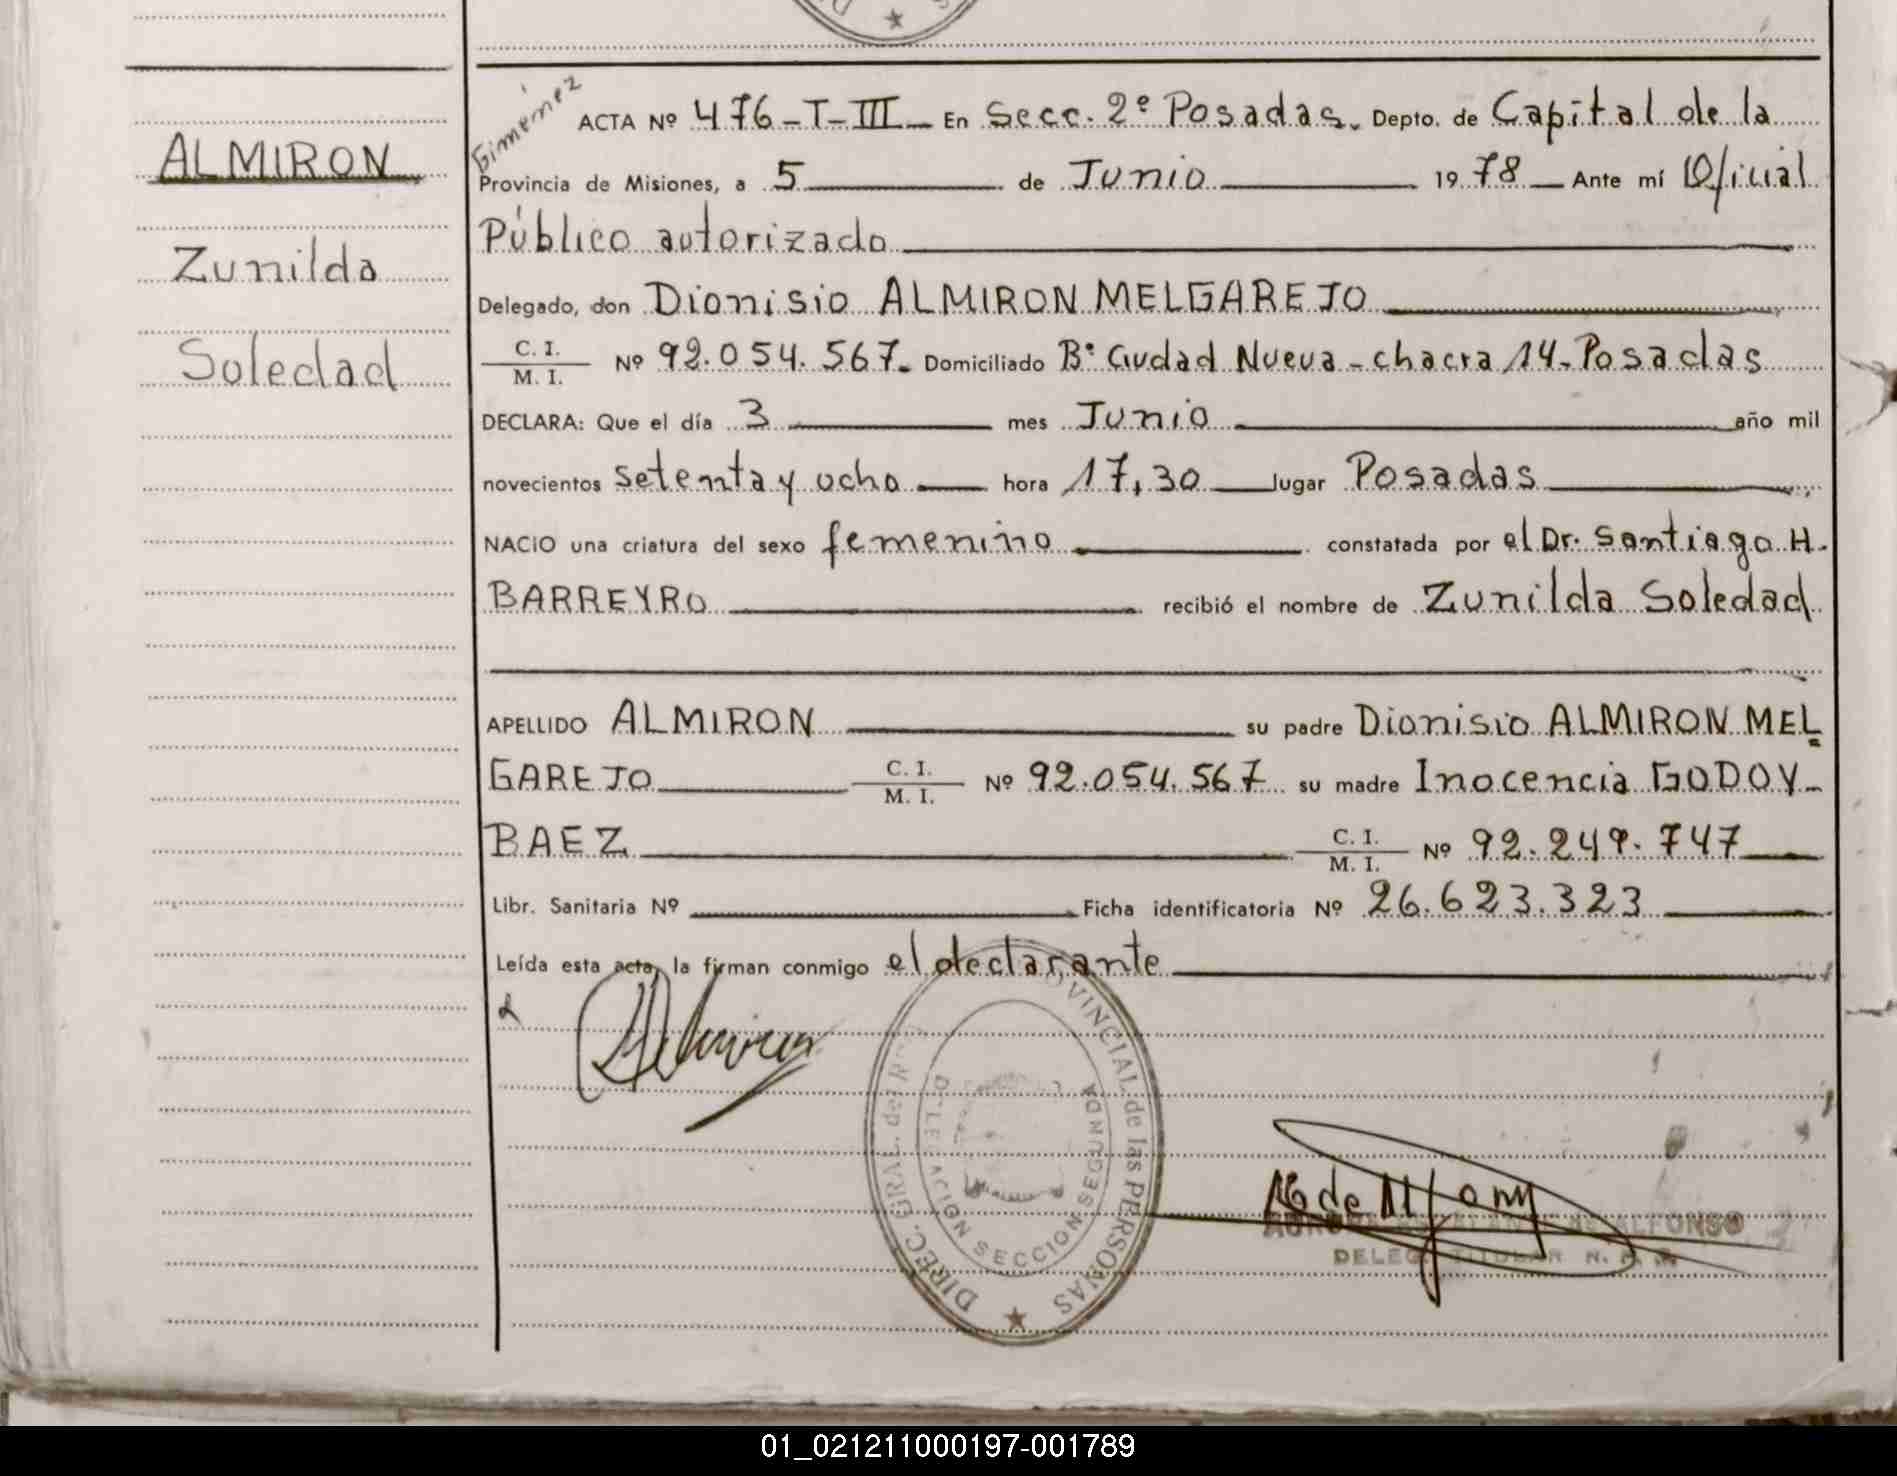 ALMIRON
Zunilda
Soledad
Gimenez
ACTA Nº 476-T-III- En Secc. 2º Posadas. Depto. de Capital de la
Provincia de Misiones, a 5 de Junio 1978 Ante mí Oficial
Público autorizado
Delegado, don Dionisio ALMIRON MELGAREJO
C. I.
M. I. Nº 92.054.567. Domiciliado Bº Ciudad Nueva - chacra 14- Posadas
DECLARA: Que el día 3 mes Junio año mil
novecientos setenta y ocho hora 17,30 lugar Posadas
NACIO una criatura del sexo femenino constatada por el Dr. Santiago H.
BARREYRO recibió el nombre de Zunilda Soledad
APELLIDO ALMIRON su padre Dionisio ALMIRON MEL
GAREJO C. I.
M. I. Nº 92.054.567 su madre Inocencia GODOY-
BAEZ C. I.
M. I. Nº 92.249.747
Libr. Sanitaria Nº Ficha identificatoria Nº 26.623.323
Leída esta acta, la firman conmigo el declarante
Almiron
DIREC. GRAL. del PROVINCIAL de las PERSONAS
DELEGACION SECCION SEGUNDA
de ALFONSO
DELEG. TITULAR
01_021211000197-001789